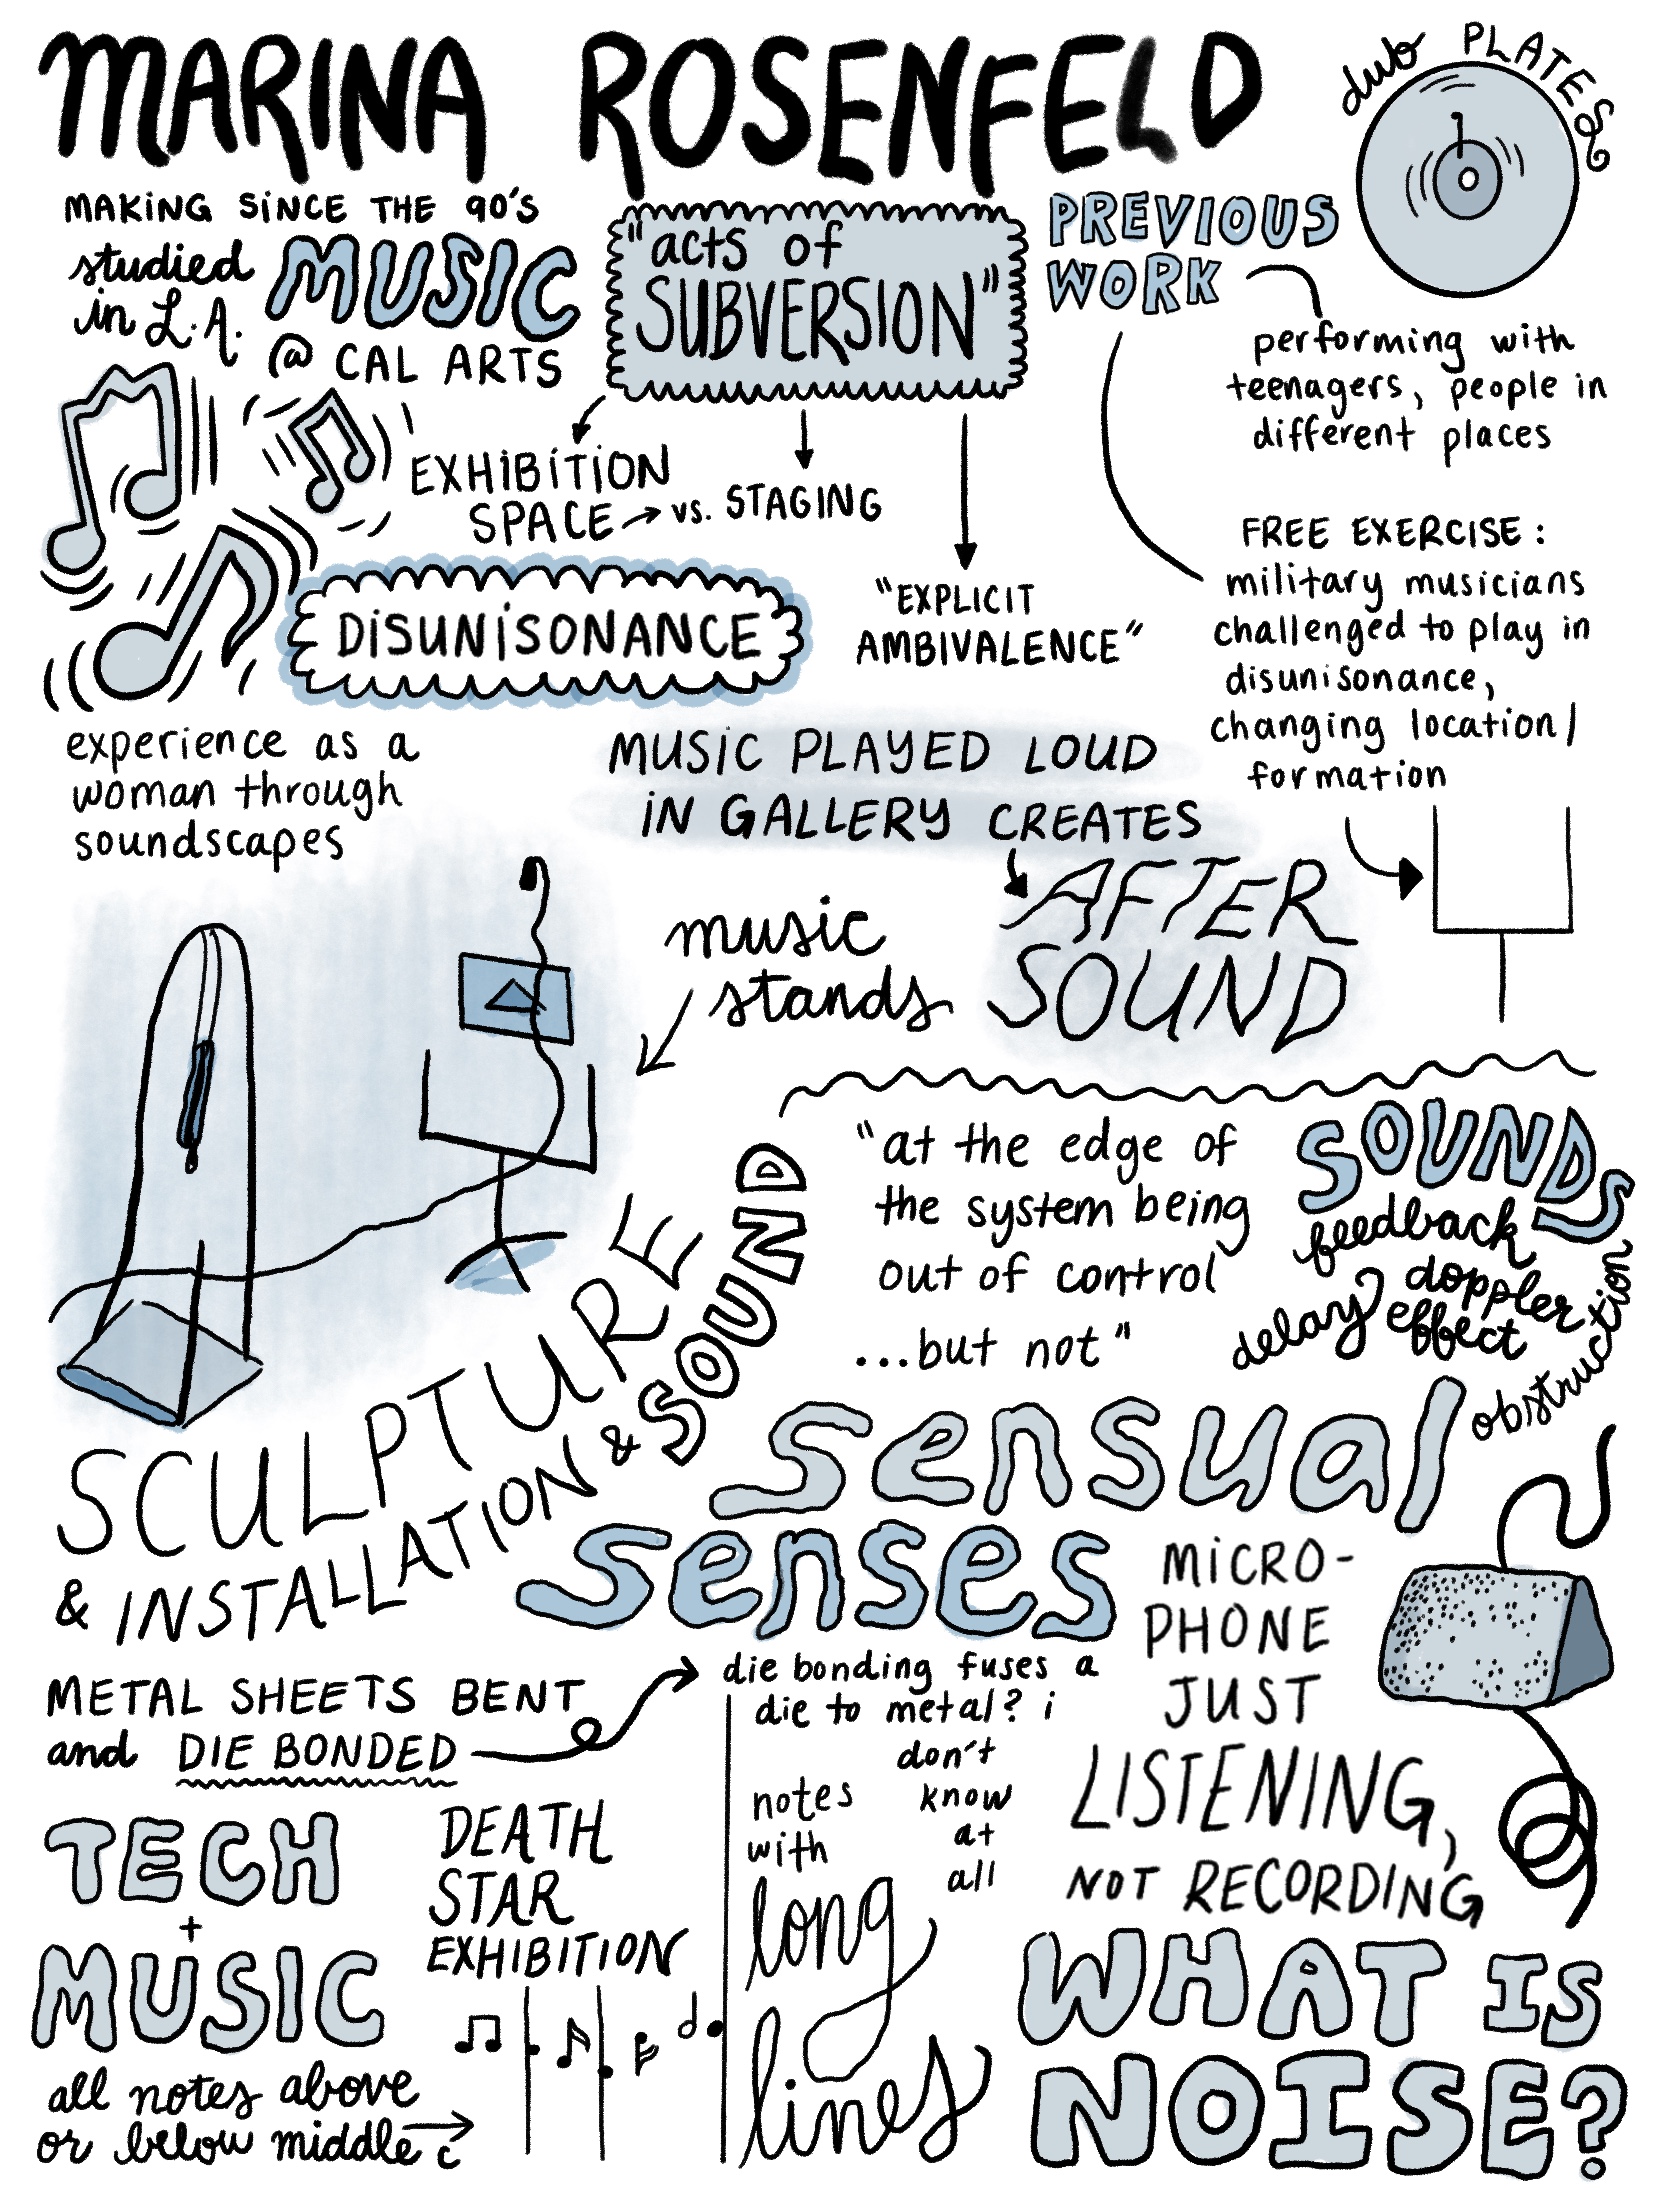 MARINA ROSENFELD
dub PLATES
MAKING SINCE THE 90'S
studied
in L.A.
MUSIC
@ CAL ARTS
"acts of
SUBVERSION"
EXHIBITION
SPACE
vs. STAGING
"EXPLICIT
AMBIVALENCE"
PREVIOUS
WORK
performing with
teenagers, people in
different places
FREE EXERCISE:
military musicians
challenged to play in
disunisonance,
changing location/
formation
DISUNISONANCE
experience as a
woman through
soundscapes
MUSIC PLAYED LOUD
IN GALLERY CREATES
AFTER
SOUND
music
stands
"at the edge of
the system being
out of control
...but not"
SOUNDS
feedback
doppler
effect
delay
obstruction
SCULPTURE
& INSTALLATION & SOUND
sensual
senses
METAL SHEETS BENT
and DIE BONDED
die bonding fuses a
die to metal? i
don't
know
at
all
MICRO-
PHONE
JUST
LISTENING,
NOT RECORDING
TECH
+
MUSIC
DEATH
STAR
EXHIBITION
notes
with
long
lines
all notes above
or below middle c
WHAT IS
NOISE?